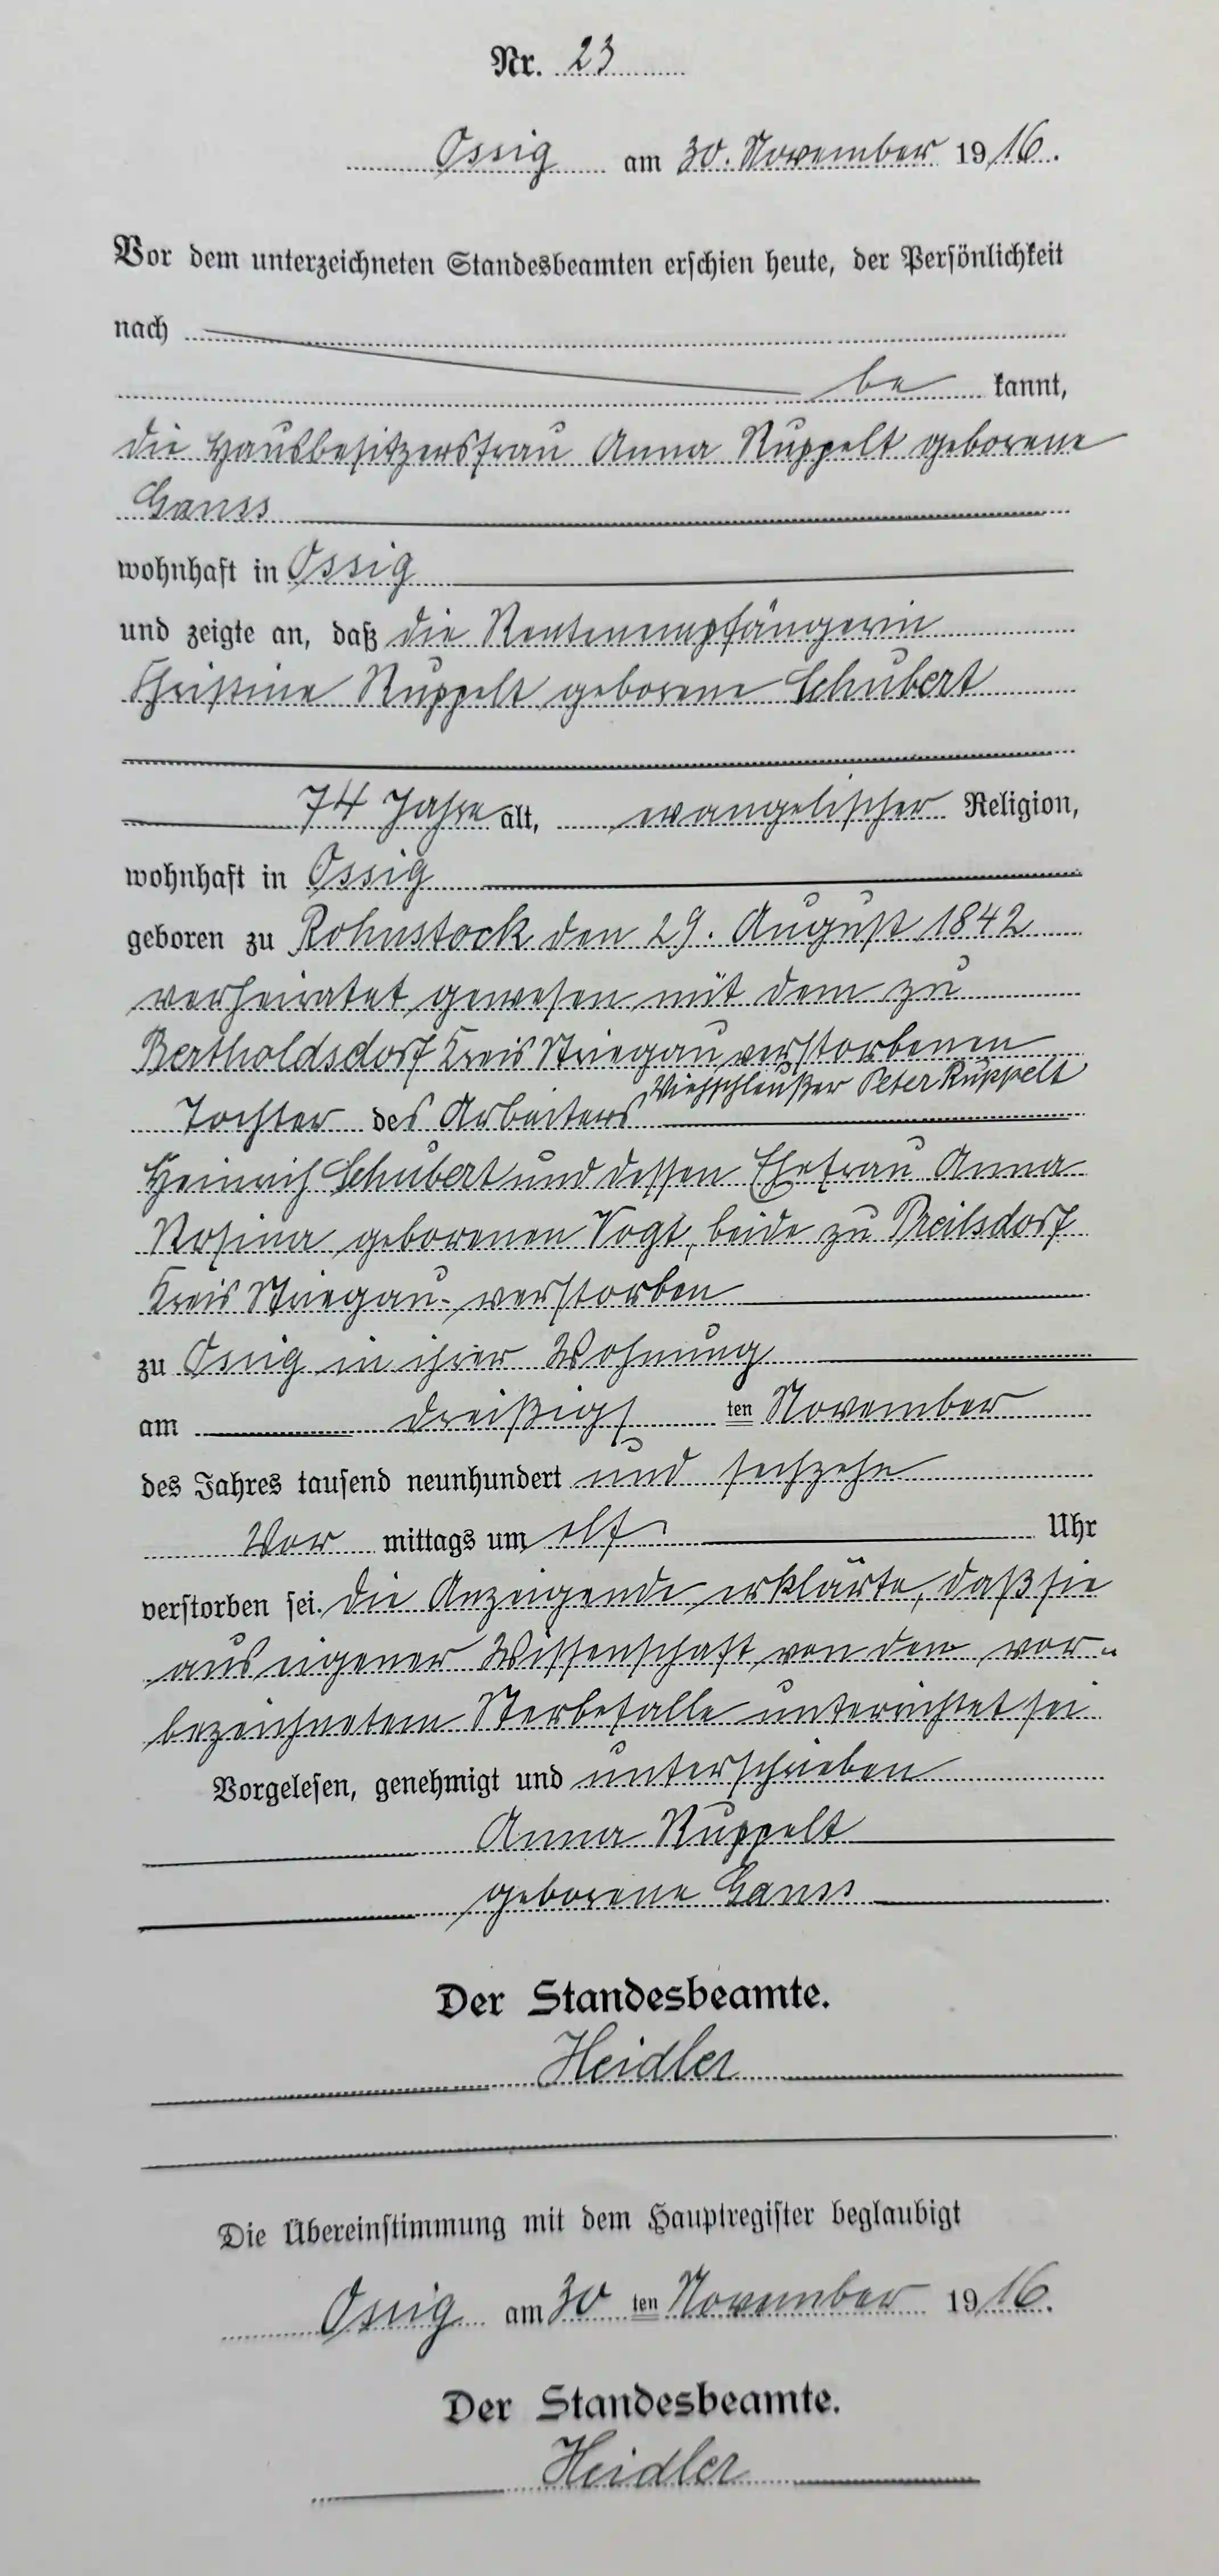 Nr. 23
Ossig am 30. November 1916.
Vor dem unterzeichneten Standesbeamten erschien heute, der Persönlichkeit
nach
be kannt,
die Hausbesitzersfrau Anna Ruppelt geborene
Ganss
wohnhaft in Ossig
und zeigte an, daß die Rentenempfängerin
Christine Ruppelt geborene Schubert
74 Jahre alt, evangelischer Religion,
wohnhaft in Ossig
geboren zu Rohnstock den 29. August 1842
verheiratet gewesen mit dem zu
Bertholdsdorf Kreis Striegau verstorbenen
Viehschleußer Peter Ruppelt
Tochter des Arbeiters
Heinrich Schubert und dessen Ehefrau Anna
Rosina geborenen Vogt, beide zu Preilsdorf
Kreis Striegau verstorben
zu Ossig in ihrer Wohnung
am dreißigs ten November
des Jahres tausend neunhundert und sechzehn
Vor mittags um elf Uhr
verstorben sei. Die Anzeigende erklärte, daß sie
aus eigener Wissenschaft von dem vor-
bezeichnetem Sterbefalle unterrichtet sei
Vorgelesen, genehmigt und unterschrieben
Anna Ruppelt
geborene Ganss
Der Standesbeamte.
Heidler
Die Übereinstimmung mit dem Hauptregister beglaubigt
Ossig am 30 ten November 1916.
Der Standesbeamte.
Heidler